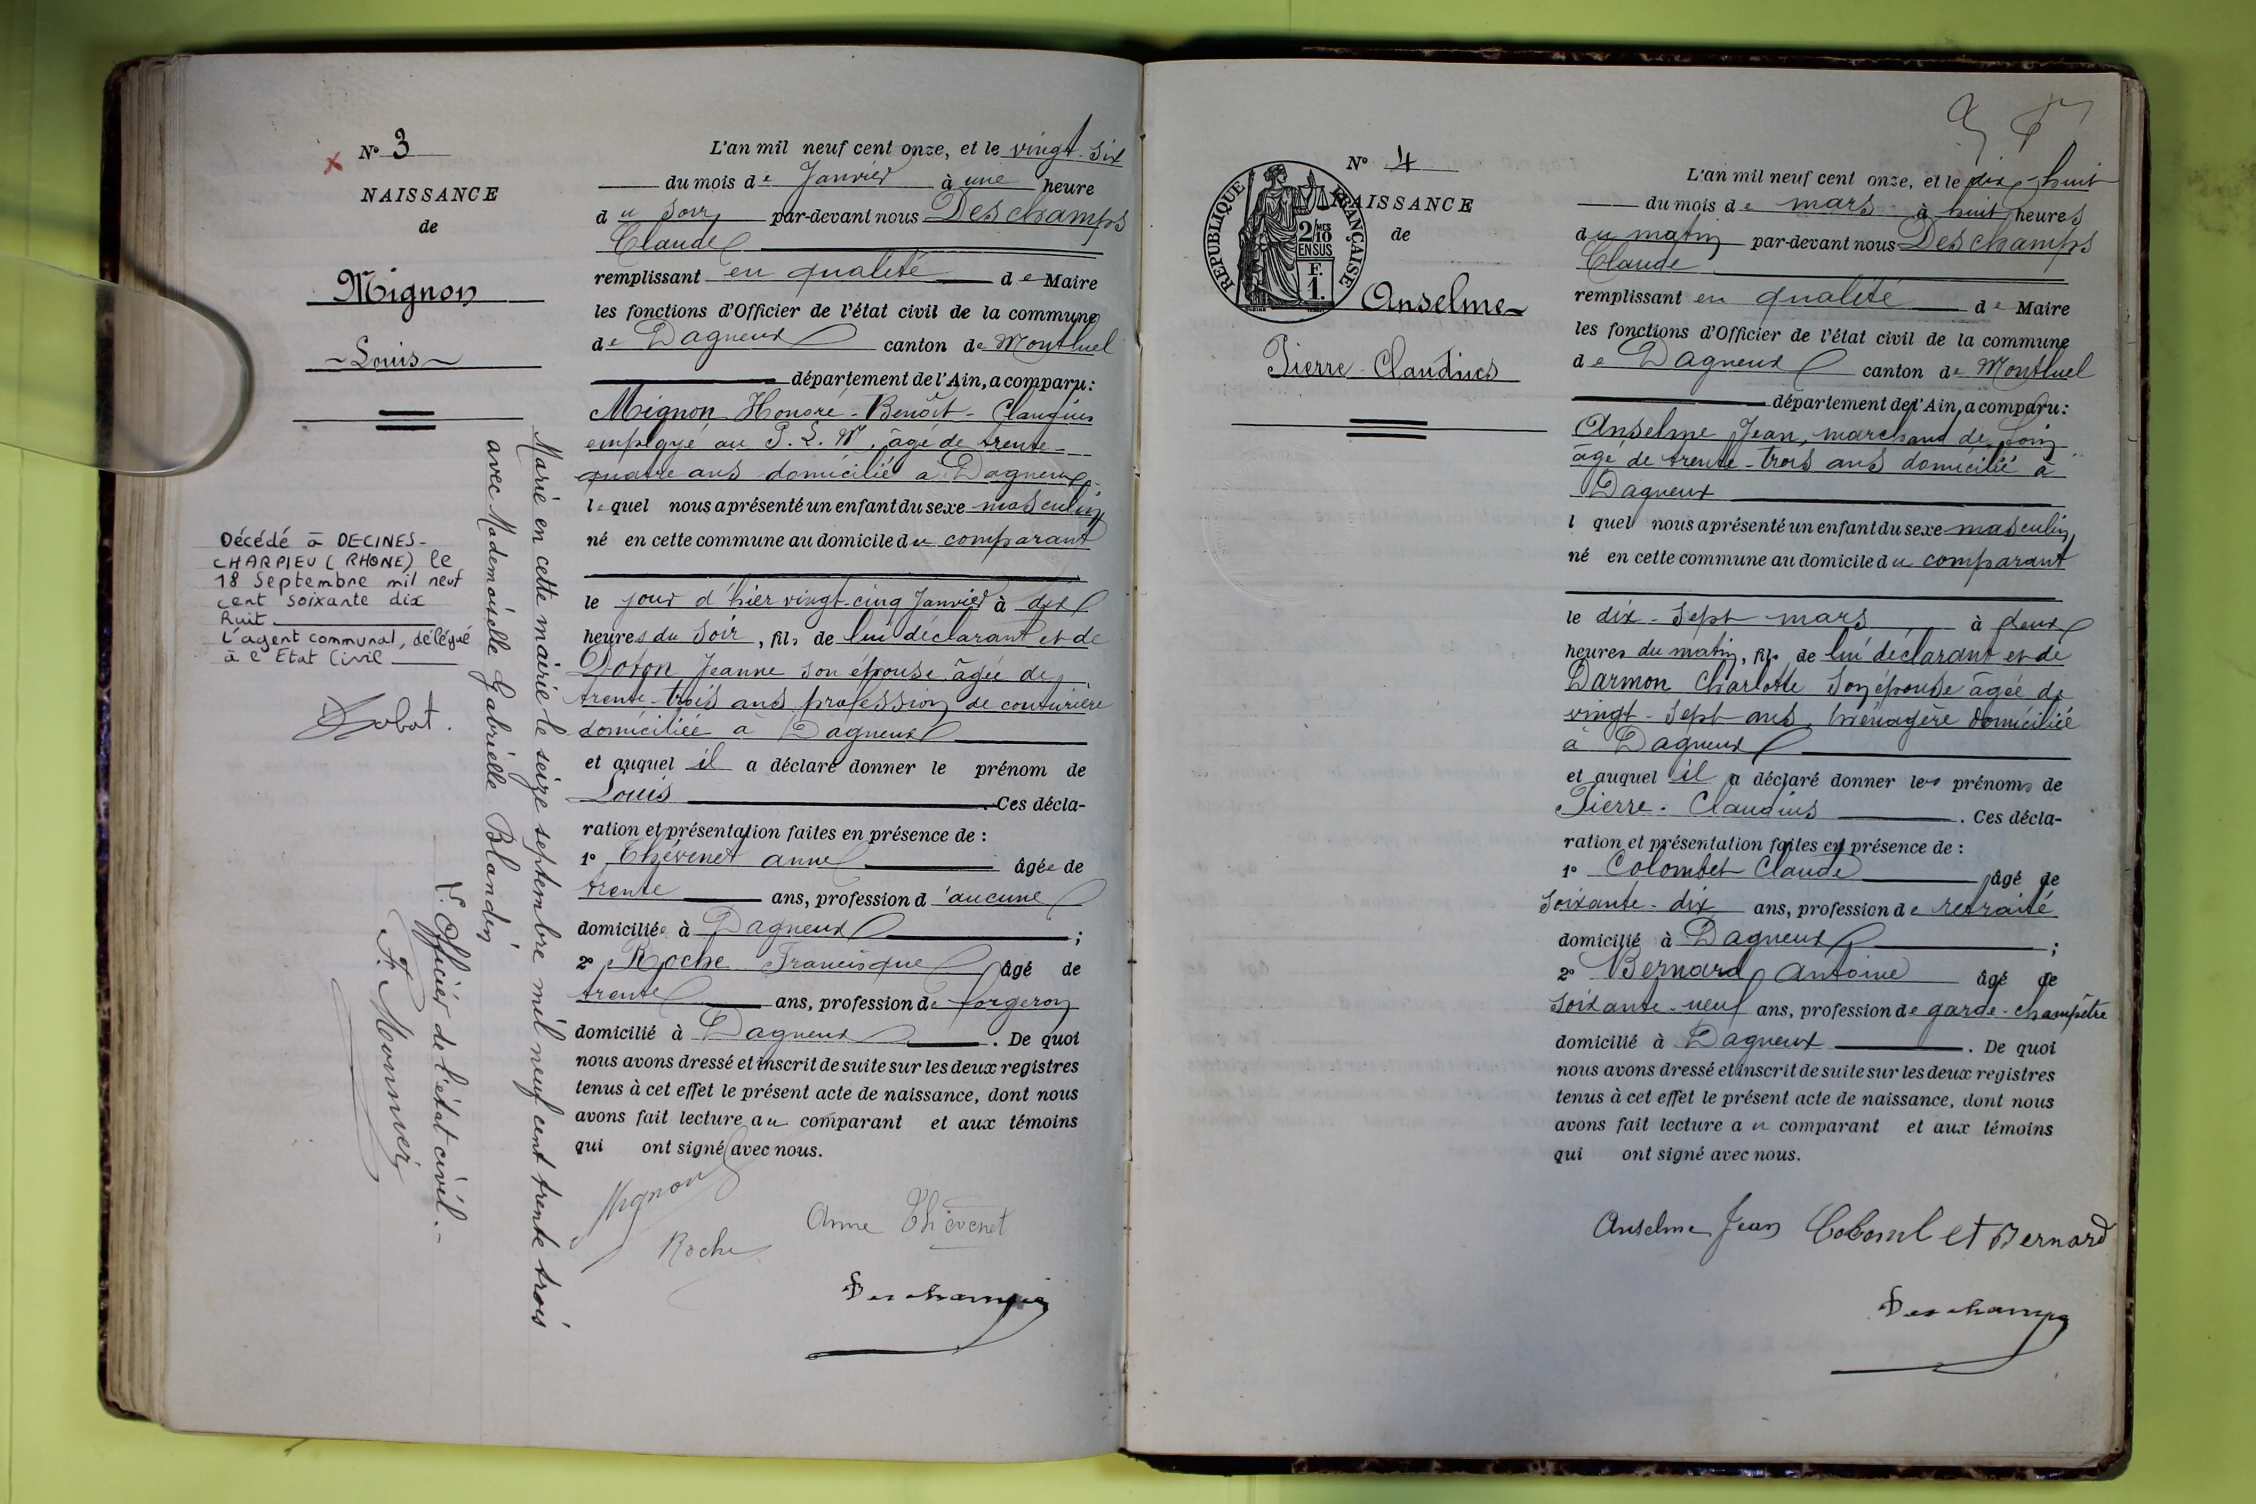 N° 3
NAISSANCE
de
Mignon
Louis
Décédé à DECINES-
CHARPIEU (RHONE) le
18 Septembre mil neuf
cent soixante dix
huit
L'agent communal, délégué
à l'Etat Civil
Marié en cette mairie le seize septembre mil neuf cent trente trois
avec Mademoiselle Gabrielle Blandin
L'Officier de l'état civil.-
F. Monnier
L'an mil neuf cent onze, et le vingt-six
du mois de Janvier à une heure
du soir par-devant nous Deschamps
Claude
remplissant en qualité de Maire
les fonctions d'Officier de l'état civil de la commune
de Dagneux canton de Montluel
département de l'Ain, a comparu :
Mignon Honoré-Benoît-Claudius
employé au P. L. M. âgé de trente-
quatre ans domicilié à Dagneux
lequel nous a présenté un enfant du sexe masculin
né en cette commune au domicile du comparant
le jour d'hier vingt-cinq Janvier à dix
heures du soir, fils de lui déclarant et de
Jeanne son épouse âgée de
trente-trois ans profession de couturière
domiciliée à Dagneux
et auquel il a déclaré donner le prénom de
Louis . Ces décla-
ration et présentation faites en présence de :
1° Thévenet Anne âgée de
trente ans, profession d'aucune
domiciliée à Dagneux ;
2° Roche Francisque âgé de
trente ans, profession de forgeron
domicilié à Dagneux . De quoi
nous avons dressé et inscrit de suite sur les deux registres
tenus à cet effet le présent acte de naissance, dont nous
avons fait lecture au comparant et aux témoins
qui ont signé avec nous.
Mignon
Anne Thévenet
Roche
Deschamps
N° 4
NAISSANCE
de
REPUBLIQUE FRANÇAISE
2/10 MES
EN SUS
F.
1.
Anselme
Pierre-Claudius
L'an mil neuf cent onze, et le dix-huit
du mois de mars à huit heures
du matin par-devant nous Deschamps
Claude
remplissant en qualité de Maire
les fonctions d'Officier de l'état civil de la commune
de Dagneux canton de Montluel
département de l'Ain, a comparu :
Anselme Jean, marchand de foin
âgé de trente-trois ans domicilié à
Dagneux
l quel nous a présenté un enfant du sexe masculin
né en cette commune au domicile du comparant
le dix-sept mars à deux
heures du matin, fils de lui déclarant et de
Darmon Charlotte son épouse âgée de
vingt-sept ans, ménagère domiciliée
à Dagneux
et auquel il a déclaré donner les prénoms de
Pierre-Claudius . Ces décla-
ration et présentation faites en présence de :
1° Colombet Claude âgé de
soixante-dix ans, profession de retraité
domicilié à Dagneux ;
2° Bernard Antoine âgé de
soixante-neuf ans, profession de garde-champêtre
domicilié à Dagneux . De quoi
nous avons dressé et inscrit de suite sur les deux registres
tenus à cet effet le présent acte de naissance, dont nous
avons fait lecture au comparant et aux témoins
qui ont signé avec nous.
Anselme Jean Colombet Bernard
Deschamps